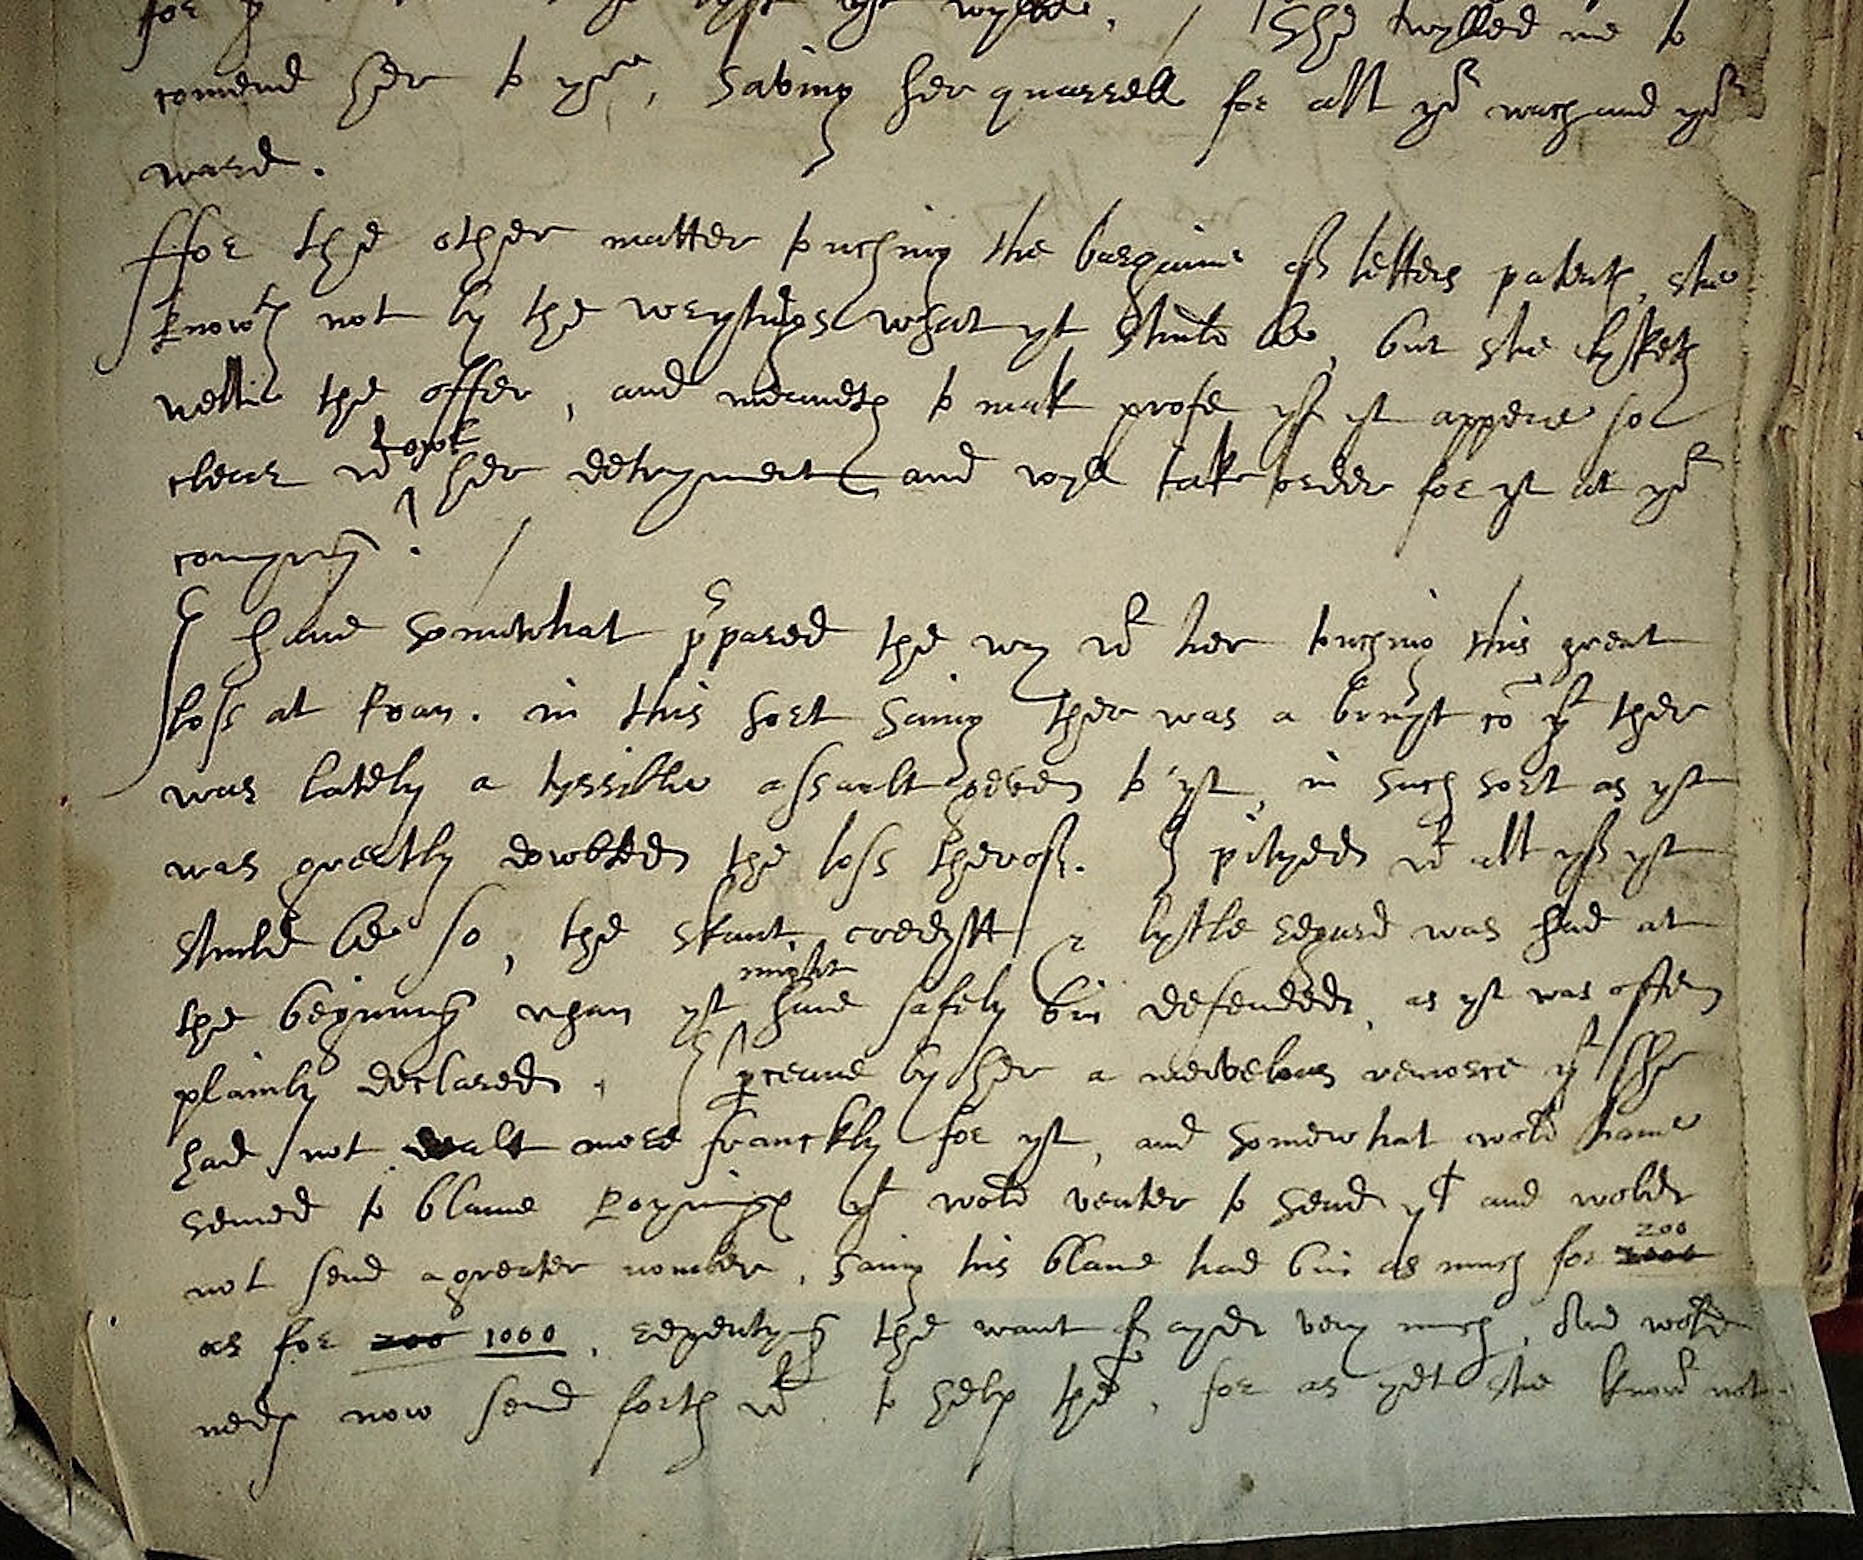 She wylled me to
comend her to yow, Saving her quarrell for all yor wach and yor
ward.
ffor the other matter tuching the bargaine off letters patents, she
knowth not by the wrytings what yt shuld be, but she lyketh
well the offer, and meaneth to mak profe yff yt appere so
clear wt owt her detryment and wyll take order for yt at yor
comyng.
I have somwhat ppared the way wt her tuching this great
loss at Roan. in this sort saing ther was a bruyt co yt ther
was lately a tyrrible assault geven to yt, in such sort as yt
was greatly dowbted the loss theroff. I pityed wt all yff yt
shuld be so, the skant credytt & lyttle regard was had at
the beginning whan yt might have safely bin defended, as yt was often
plainly declared. I pceave by her a mervelous remorce yt she
had not dealt more franckly for yt, and somewhat wold have
semed to blame Poynings yt wold venter to send yt and wold
not send a greater nomber, saing his blame had bin as much for 2000 200
as for 200 1000, repentyng the want off ayde very much, And wold
neds now send forth wt to help the, for as yet she know not